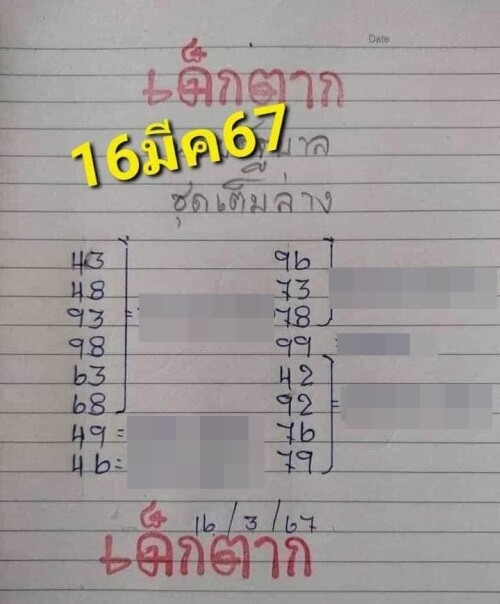 Date
เด็กตาก
16มีค67
ชุดเต็มล่าง
43
48
93 =
98
63
68
49 =
46 =
96
73
78
99 =
42
92 =
76
79
16/3/67
เด็กตาก